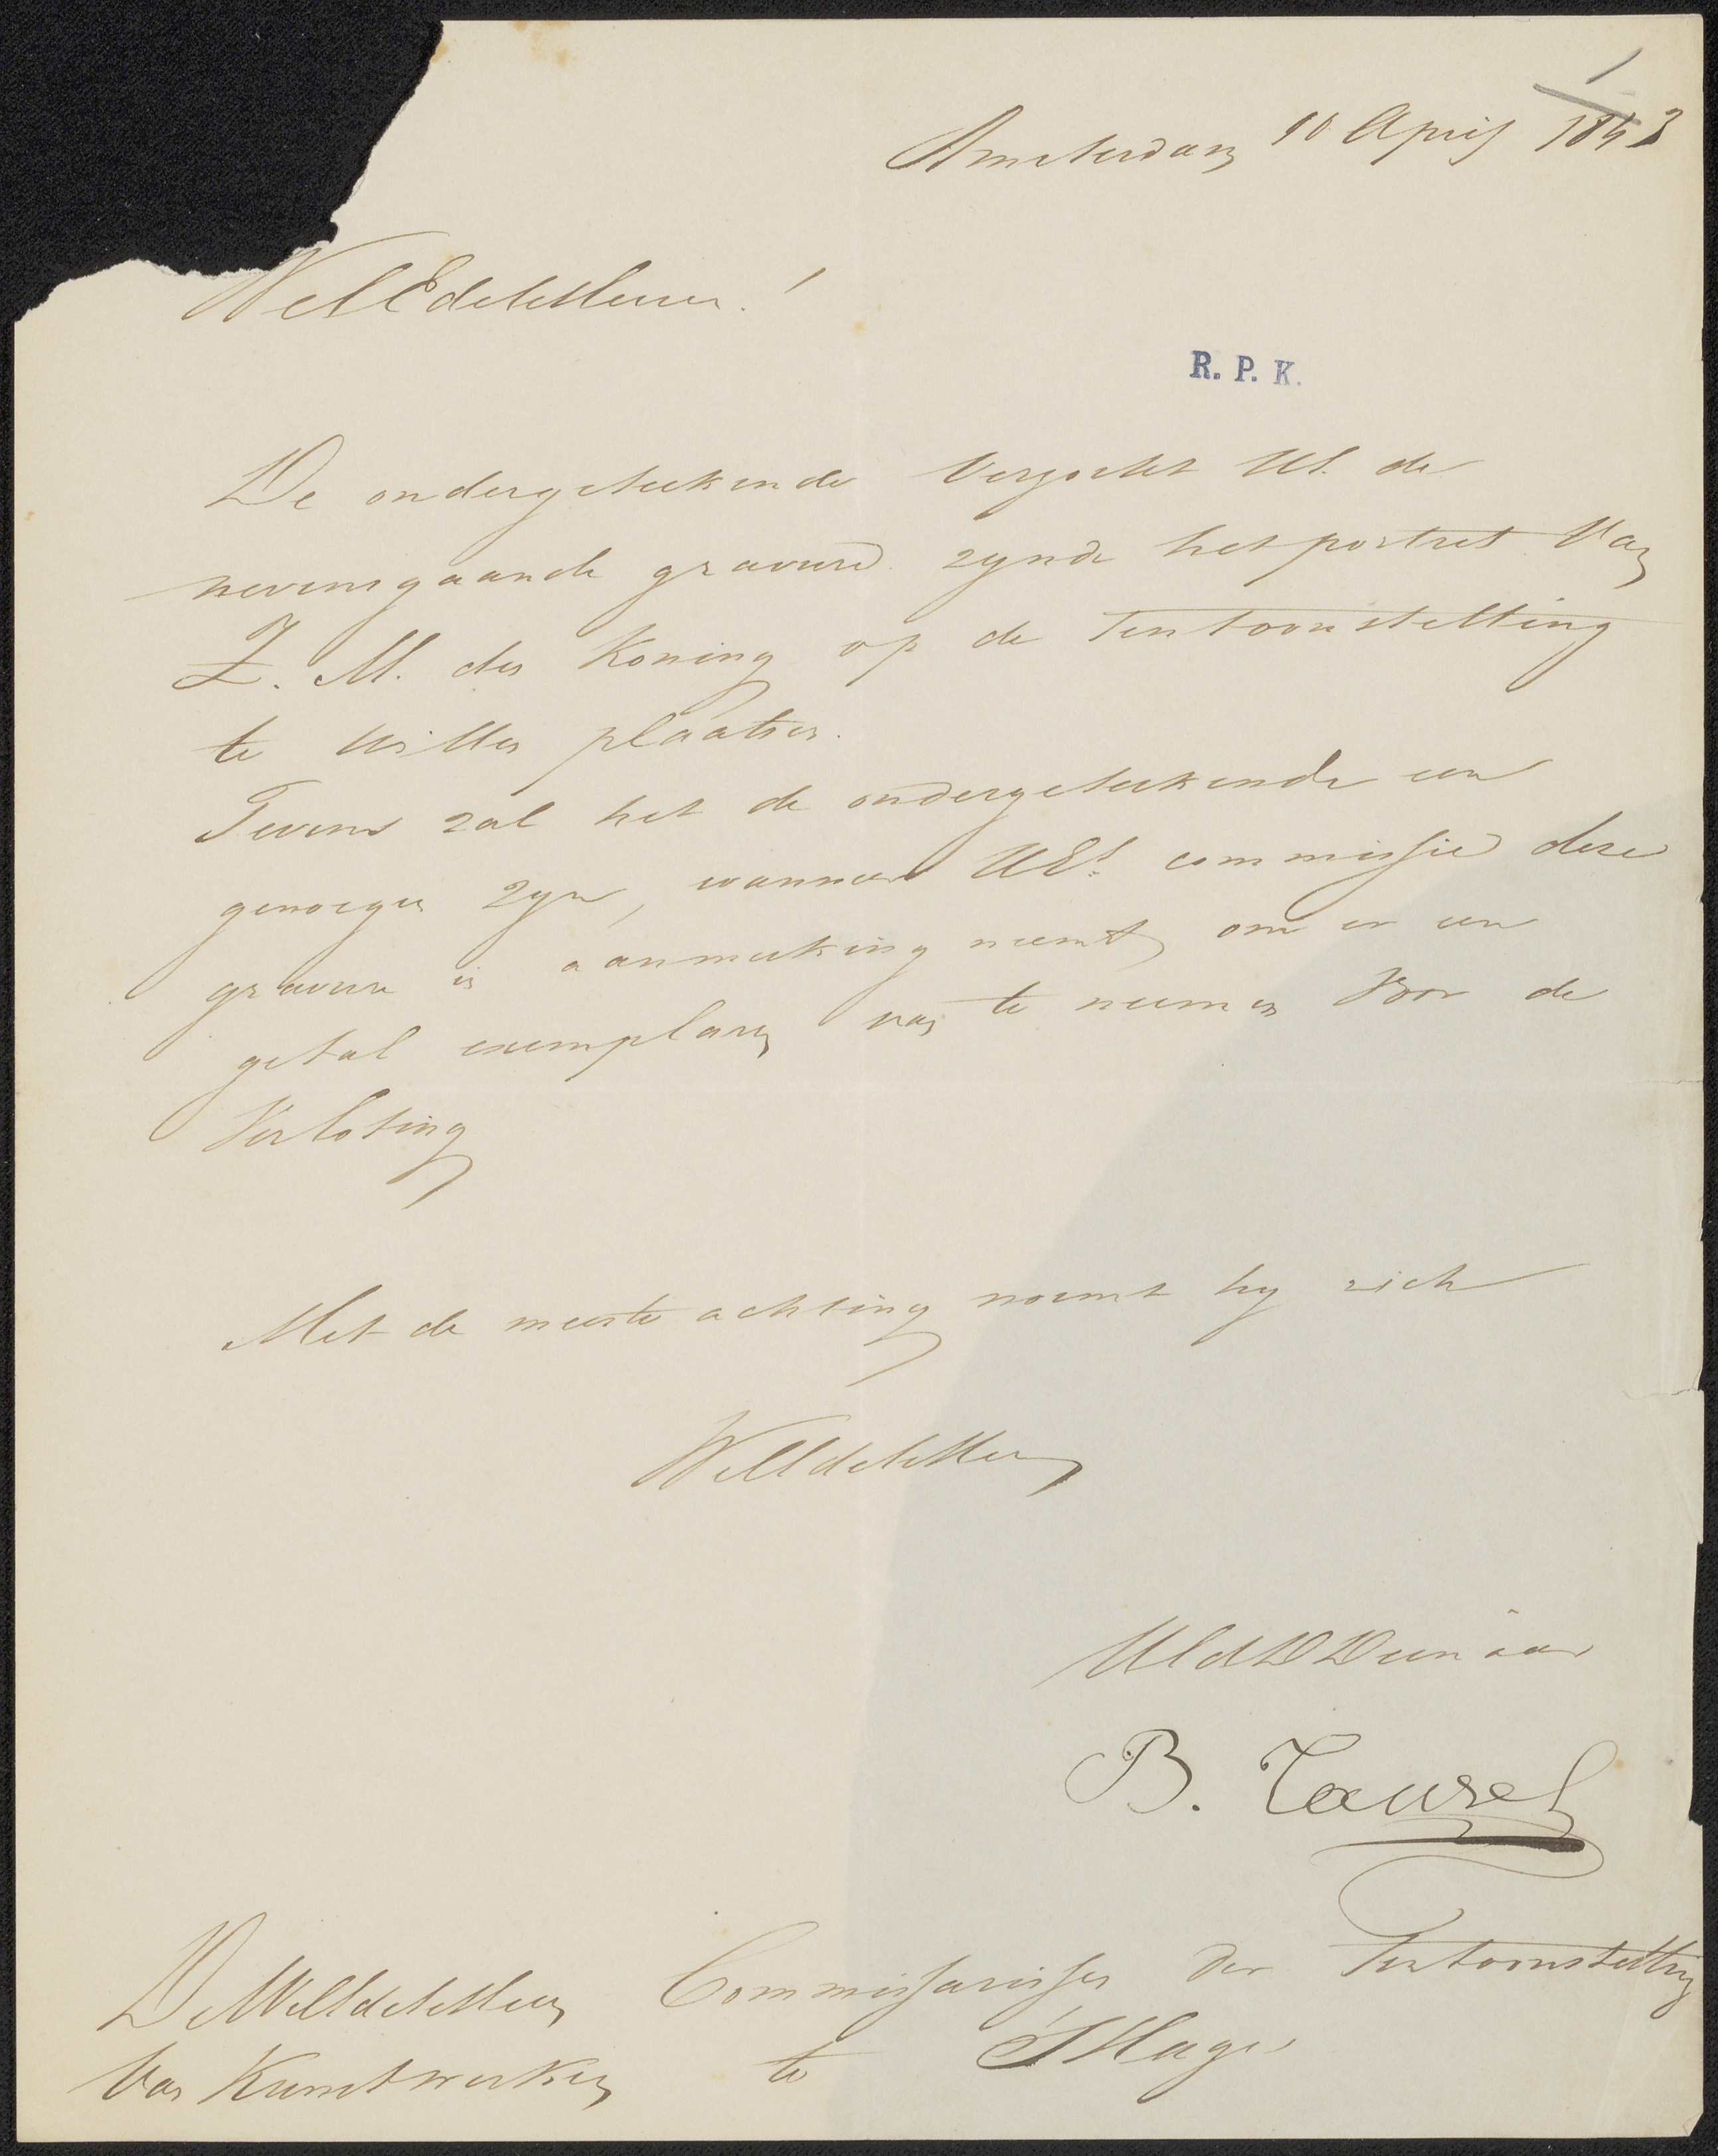 Amsterdam 10 April 1843
WelEdeleHeeren!
R. P. K.
De ondergeteekende verzoekt UE. de
nevensgaande gravure zynde het portret van
Z. M. den Koning op de Tentoonstelling
te willen plaatsen.
Tevens zal het de ondergeteekende een
genoegen zyn, wanneer UEd. commissie deze
gravure in aanmerking neemt, om er een
getal exemplaren van te neemen voor de
Verloting
Met de meeste achting noemt hy zich
WelEdeleHeeren
UEdDDienaar
B. Taurel
De WelEdeleHeeren Commissarissen der Tentoonstelling
van Kunstwerken te S'Hage